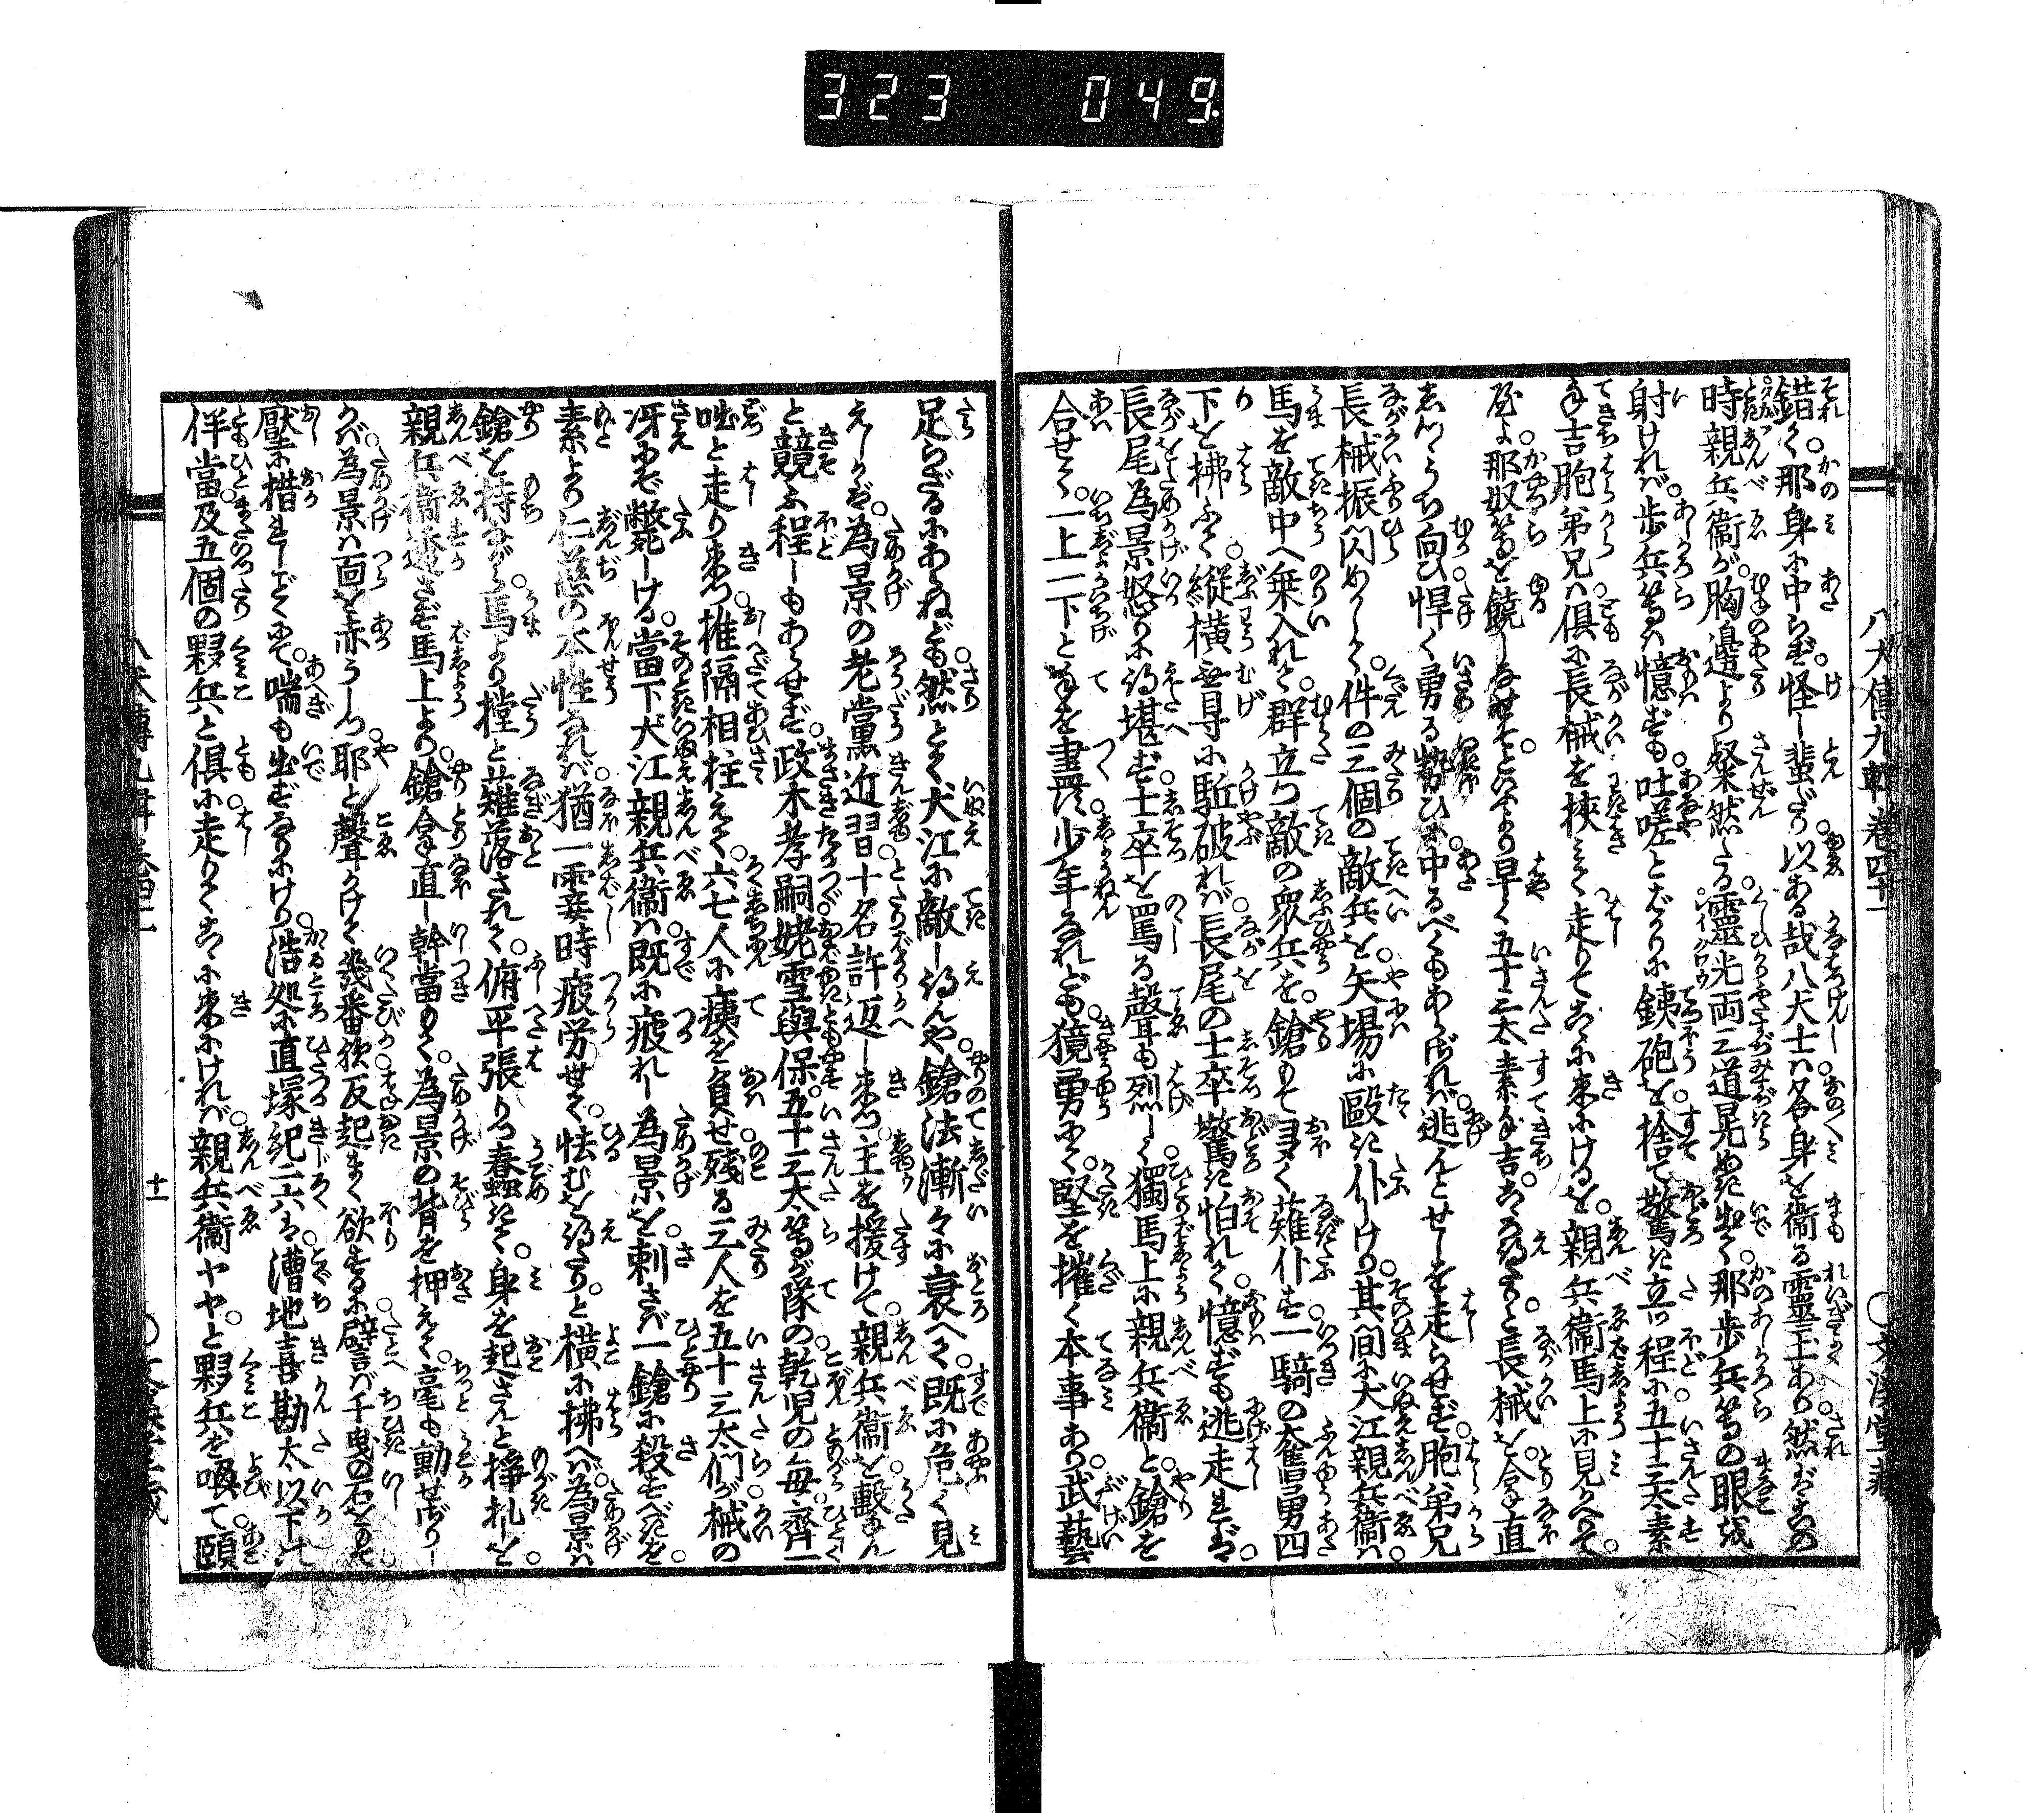 323 049
八犬傳九輯卷四十一
○文溪堂藏
錯く。那身に中らず。怪し蜚だう。以ある哉八犬士は。各身を衞る靈玉あり。然ばこの
時親兵衞が。胸邊より粲然たる。靈光両三道晃めき出て。那歩兵等の眼を
射ければ。歩兵等は憶ずも。吐嗟とばかりに銕砲を。捨て驚き立つ程に。五十三太素
手吉胞弟兄は。倶に長械を挾みて。走りて其首に來にけるを。親兵衞馬上に見かへりて。
那奴等を饒しなせそといふより早く五十三太素手吉。こゝろ得たりと。長械を拿直
しつゝうち向ひ。悍く勇る勢ひに。中るべくもあらざれば。逃んとせしを走らせず。胞弟兄
長械振閃めかして。件の三個の敵兵を。矢場に毆き仆しけり。其間に犬江親兵衞は。
馬を敵中へ乗入れて。群立つ敵の衆兵を。鎗もて多く薙仆す。一騎の奮勇四
下を拂ふて。縱橫無导に駈破れば。長尾の士卒驚き怕れて。憶ずも逃走れば。
長尾為景怒りに得堪ず。士卒を罵る聲も烈しく。獨馬上に親兵衞と。鎗を
合せて。一上一下と手を盡す。少年なれども。獷勇にて。堅を摧く本事あり。武藝
足らざるにあらねども。然とて犬江に敵し得んや。鎗法漸々に衰へて。既に危く見
えしかば。為景の老黨近習。十名許返し來つ。主を援けて。親兵衞を擊まく
と競ふ程しもあらせず。政木孝嗣姥雪與保。五十三太等が隊の。乾児の毎。齊一
咄と走り來つ。推隔相柱えて。六七人に痍を負せ。残る三人を五十三太們が。械の
冴にぞ斃しける。當下犬江親兵衞は。既に疲れし為景を。刺さば一鎗に殺すべきを。
素より仁慈の本性なれば。猶一霎時疲労せて。怯むを得たりと横に拂へば。為景は
鎗を持ながら。馬より摚と薙落されて。俯平張りつ蠢きて。身を起さんと掙扎を。
親兵衞透さず馬上より。鎗拿直し幹當もて。為景の背を押えて。毫も動せざりし
かば。為景は面を赤うしつ。耶と聲かけて幾番歟。反起まく欲するに。譬ば千曳の石をもて
壓に措れしごとくにて。喘も出ずなりにけり。浩処に直塚紀二六は。漕地喜勘太以下の
伴當。及五個の夥兵と倶に。走りて其首に來にければ。親兵衞ヤヤと夥兵を喚て。頤
八犬傳九輯卷四十一
十一
○文溪堂藏